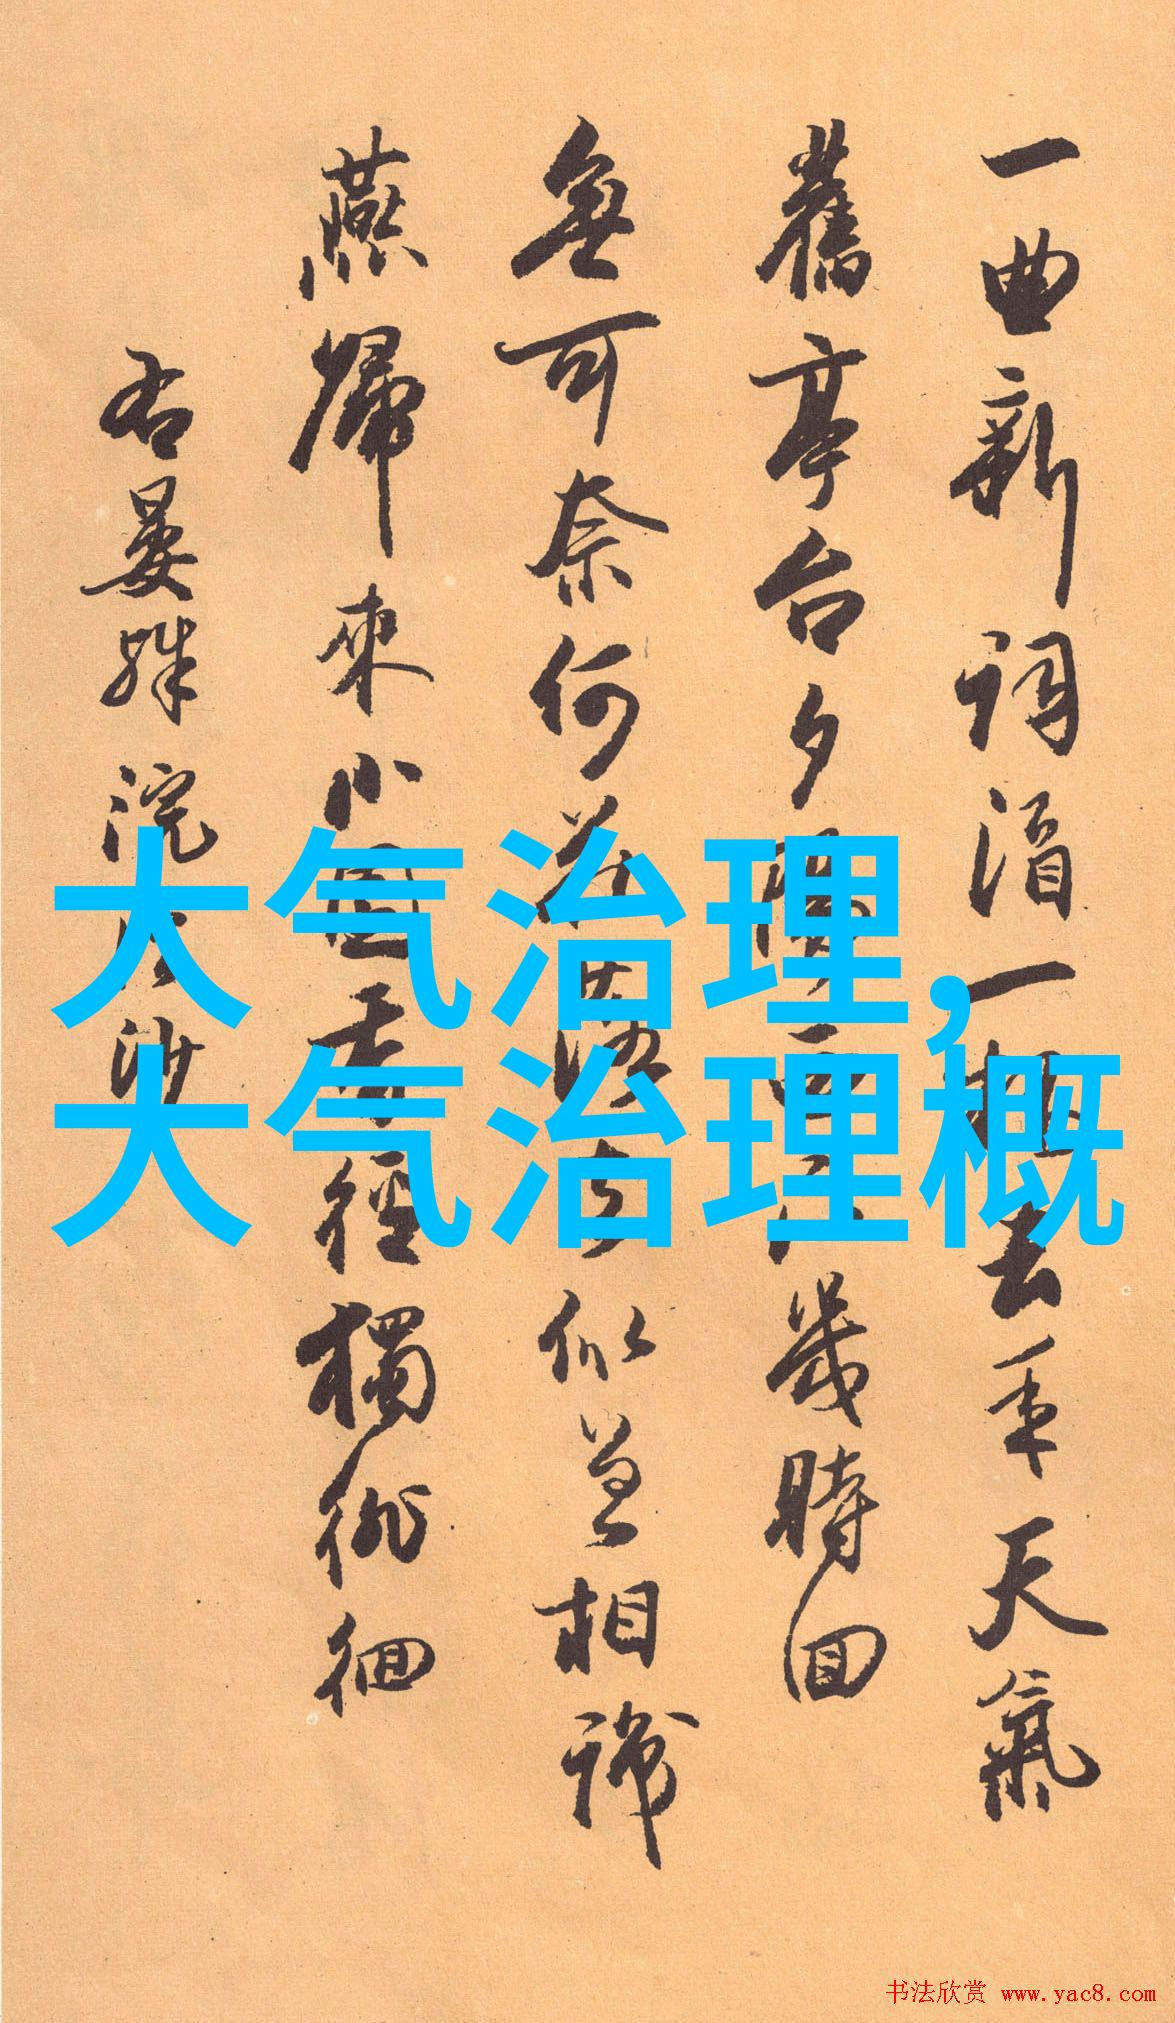 一曲新詞酒一杯去年天氣
舊亭台夕陽西下幾時回
無可奈何花落去似曾相識
燕歸來小園香徑獨徘徊
右晏殊浣溪沙
大气治理,
大气治理概
书法欣赏 www.yac8.com